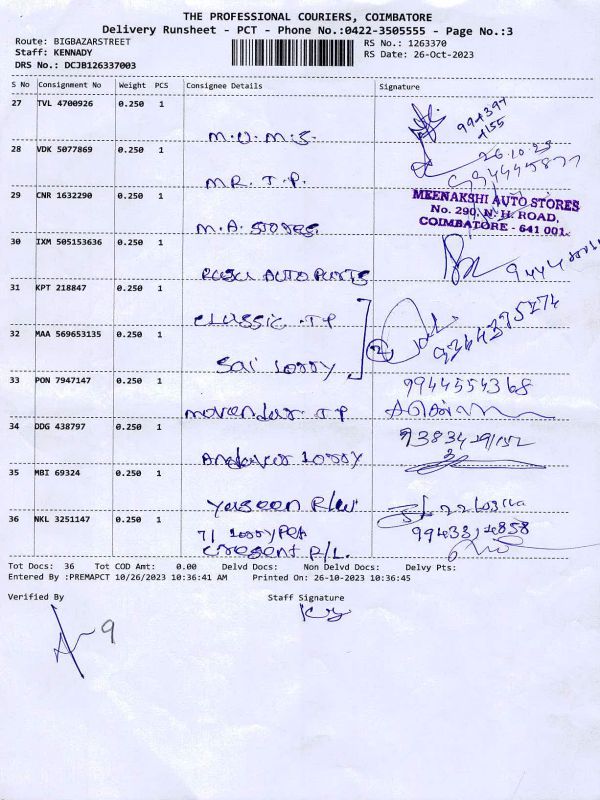 THE PROFESSIONAL COURIERS, COIMBATORE
Delivery Runsheet - PCT - Phone No.:0422-3505555 - Page No.:3
Route: BIGBAZARSTREET RS No.: 1263370
Staff: KENNADY RS Date: 26-Oct-2023
DRS No.: DCJB126337003
S No Consignment No Weight PCS Consignee Details Signature
27 TVL 4700926 0.250 1
M.U.M.S.
28 VDK 5077869 0.250 1
26.10.23
MR. T.P.
29 CNR 1632290 0.250 1
MEENAKSHI AUTO STORES
No. 290, N. H. ROAD,
COIMBATORE - 641 001.
M.A. STORES.
30 IXM 505153636 0.250 1
AUTO PARTS
31 KPT 218847 0.250 1
CLASSIC .T.P
32 MAA 569653135 0.250 1
2
9344375274
Sai Lorry
33 PON 7947147 0.250 1
9944554368
T.P
34 DDG 438797 0.250 1
Lorry
35 MBI 69324 0.250 1
Yaseen
36 NKL 3251147 0.250 1
Tot Docs: 36 Tot COD Amt: 0.00 Delvd Docs: Non Delvd Docs: Delvy Pts:
Entered By :PREMAPCT 10/26/2023 10:36:41 AM Printed On: 26-10-2023 10:36:45
Verified By Staff Signature
9